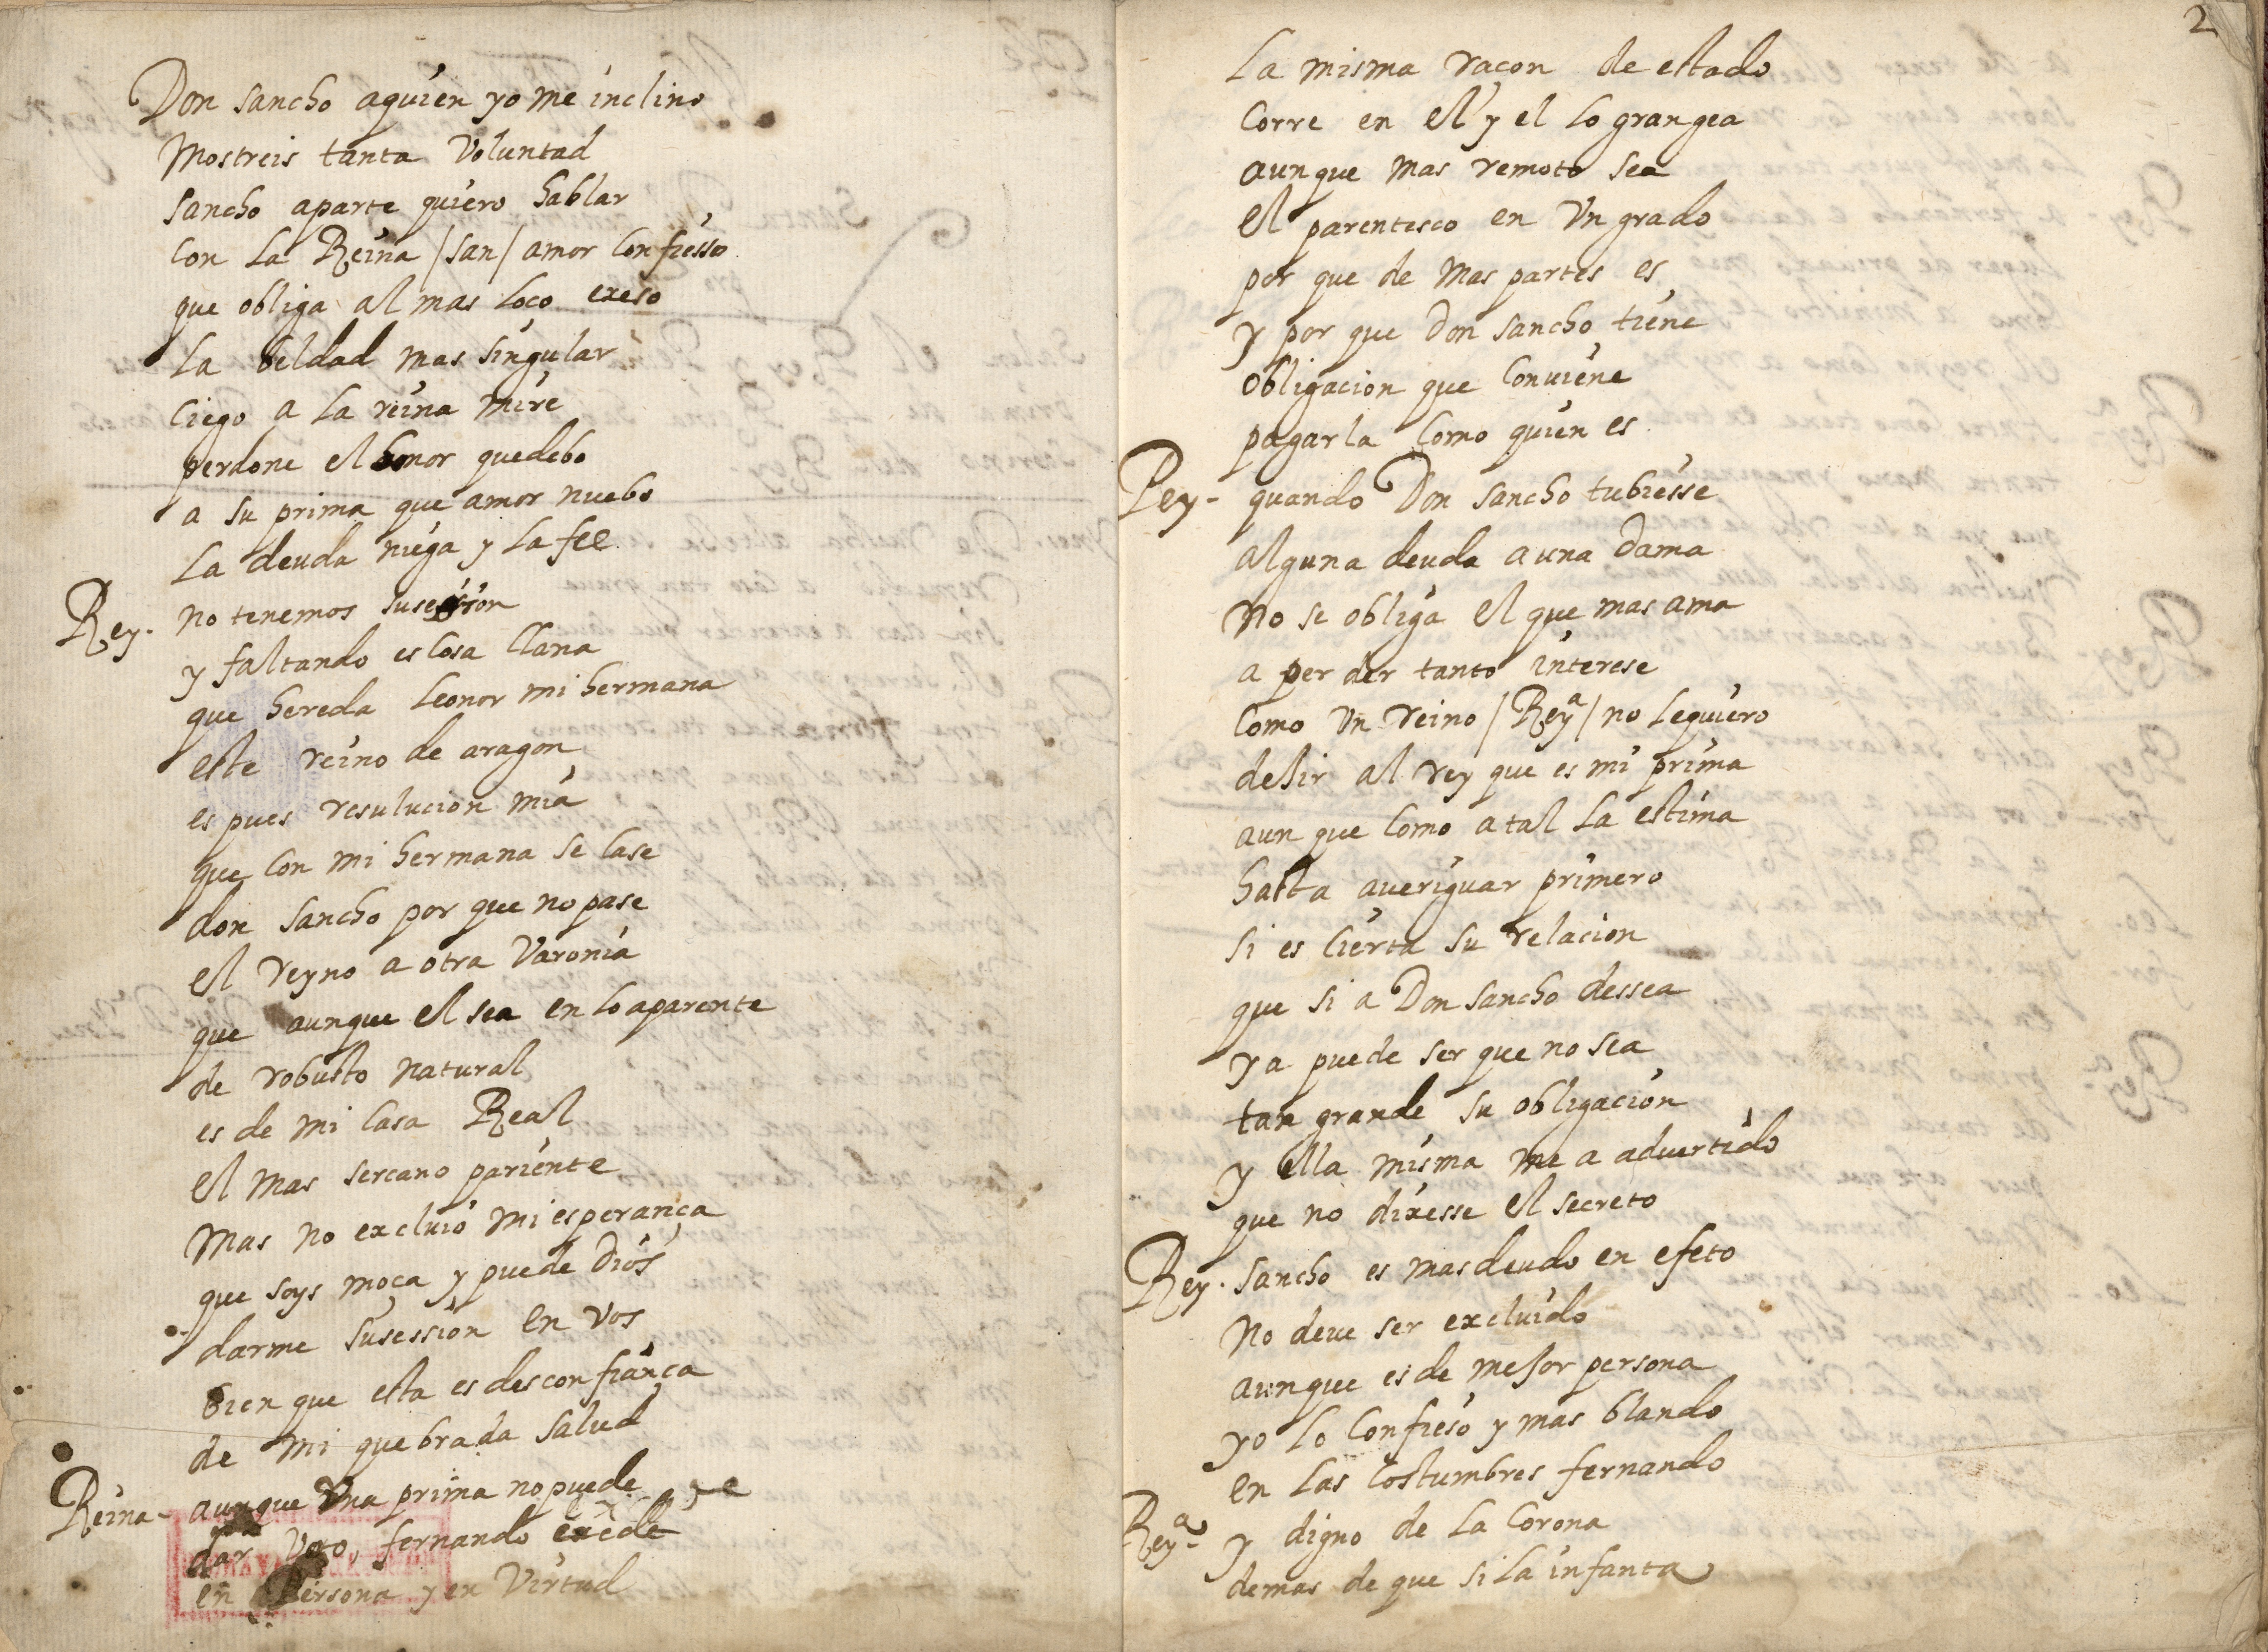 Don sancho aquien yo me inclino
Mostreis tanta Voluntad
sancho aparte quiero hablar
con La Reina /san/ amor confiesso
que obliga al mas Loco exeso
La beldad mas singular
ciego a la reina mire
perdone el honor quedebo
a su prima que amor nuebo
La deuda niega y La fee
Rey. no tenemos susesion
y faltando es cosa llana
que hereda Leonor mi hermana
este reino de aragon
es pues resulucion mia
que con mi hermana se case
don sancho por que no pase
el reyno a otra Varonia
que aunque el sea en lo aparente
de robusto natural
es de mi casa Real
el mas sercano pariente
Mas no excluio mi esperança
que soys moça y puede Dios
darme susession en vos
bien que esta es desconfiança
de mi quebrada salud
Reina- aunque una prima no puede
dar voto, fernando excede
en Persona y en Virtud
2
La misma raçon de estado
corre en el y el Lo grangea
aunque mas remoto sea
el parentesco en Un grado
por que de mas partes es
y por que Don sancho tiene
obligacion que conuiene
pagarla como quien es
Rey- quando Don sancho tubiesse
alguna deuda a una Dama
no se obliga el que mas ama
a perder tanto interese
como Un reino /Reyª/ no Lequiero
desir al rey que es mi prima
aun que como a tal La estima
hasta aueriguar primero
si es cierta su relacion
que si a Don sancho dessea
ya puede ser que no sea
tan grande su obligacion
y ella misma me a aduertido
que no dixesse el secreto
Rey. sancho es mas deudo en efeto
No deue ser excluido
aunque es de mejor persona
yo Lo confieso y mas blando
en Las costumbres fernando
Reyª- y digno de La corona
demas de que si La infanta